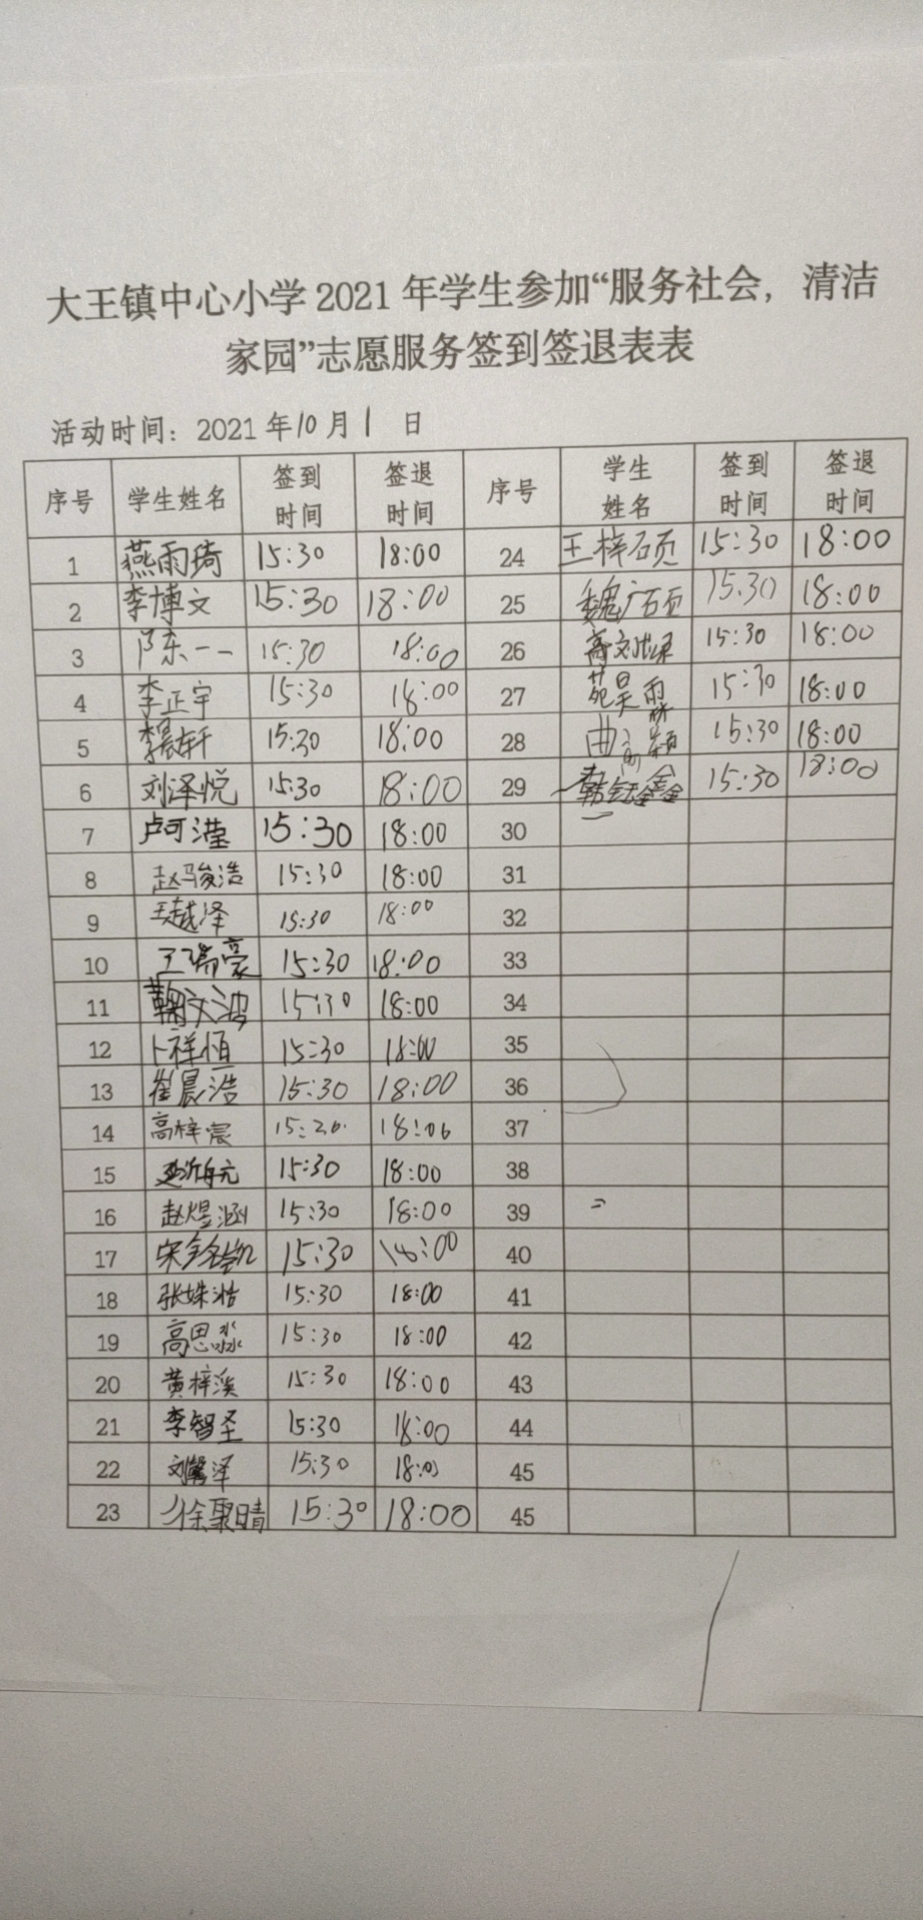 大王镇中心小学 2021 年学生参加“服务社会，清洁
家园”志愿服务签到签退表表
活动时间：2021 年 10 月 1 日
序号 学生姓名 签到时间 签退时间 序号 学生姓名 签到时间 签退时间
1 燕雨琦 15:30 18:00 24 王梓硕 15:30 18:00
2 李博文 15:30 18:00 25 魏广硕 15:30 18:00
3 陈一一 15:30 18:00 26 15:30 18:00
4 李正宇 15:30 18:00 27 苑昊雨 15:30 18:00
5 15:30 18:00 28 曲 15:30 18:00
6 刘泽悦 15:30 18:00 29 韩钰鑫 15:30 18:00
7 卢可滢 15:30 18:00 30
8 赵骏浩 15:30 18:00 31
9 王越泽 15:30 18:00 32
10 王瑞豪 15:30 18:00 33
11 15:30 18:00 34
12 卜祥恒 15:30 18:00 35
13 崔晨浩 15:30 18:00 36
14 高梓宸 18:00 37
15 15:30 18:00 38
16 赵煜涵 15:30 18:00 39
17 宋铭凯 15:30 18:00 40
18 张姝浩 15:30 18:00 41
19 高思淼 15:30 18:00 42
20 黄梓溪 15:30 18:00 43
21 李智圣 15:30 18:00 44
22 15:30 18:00 45
23 徐聚晴 15:30 18:00 45